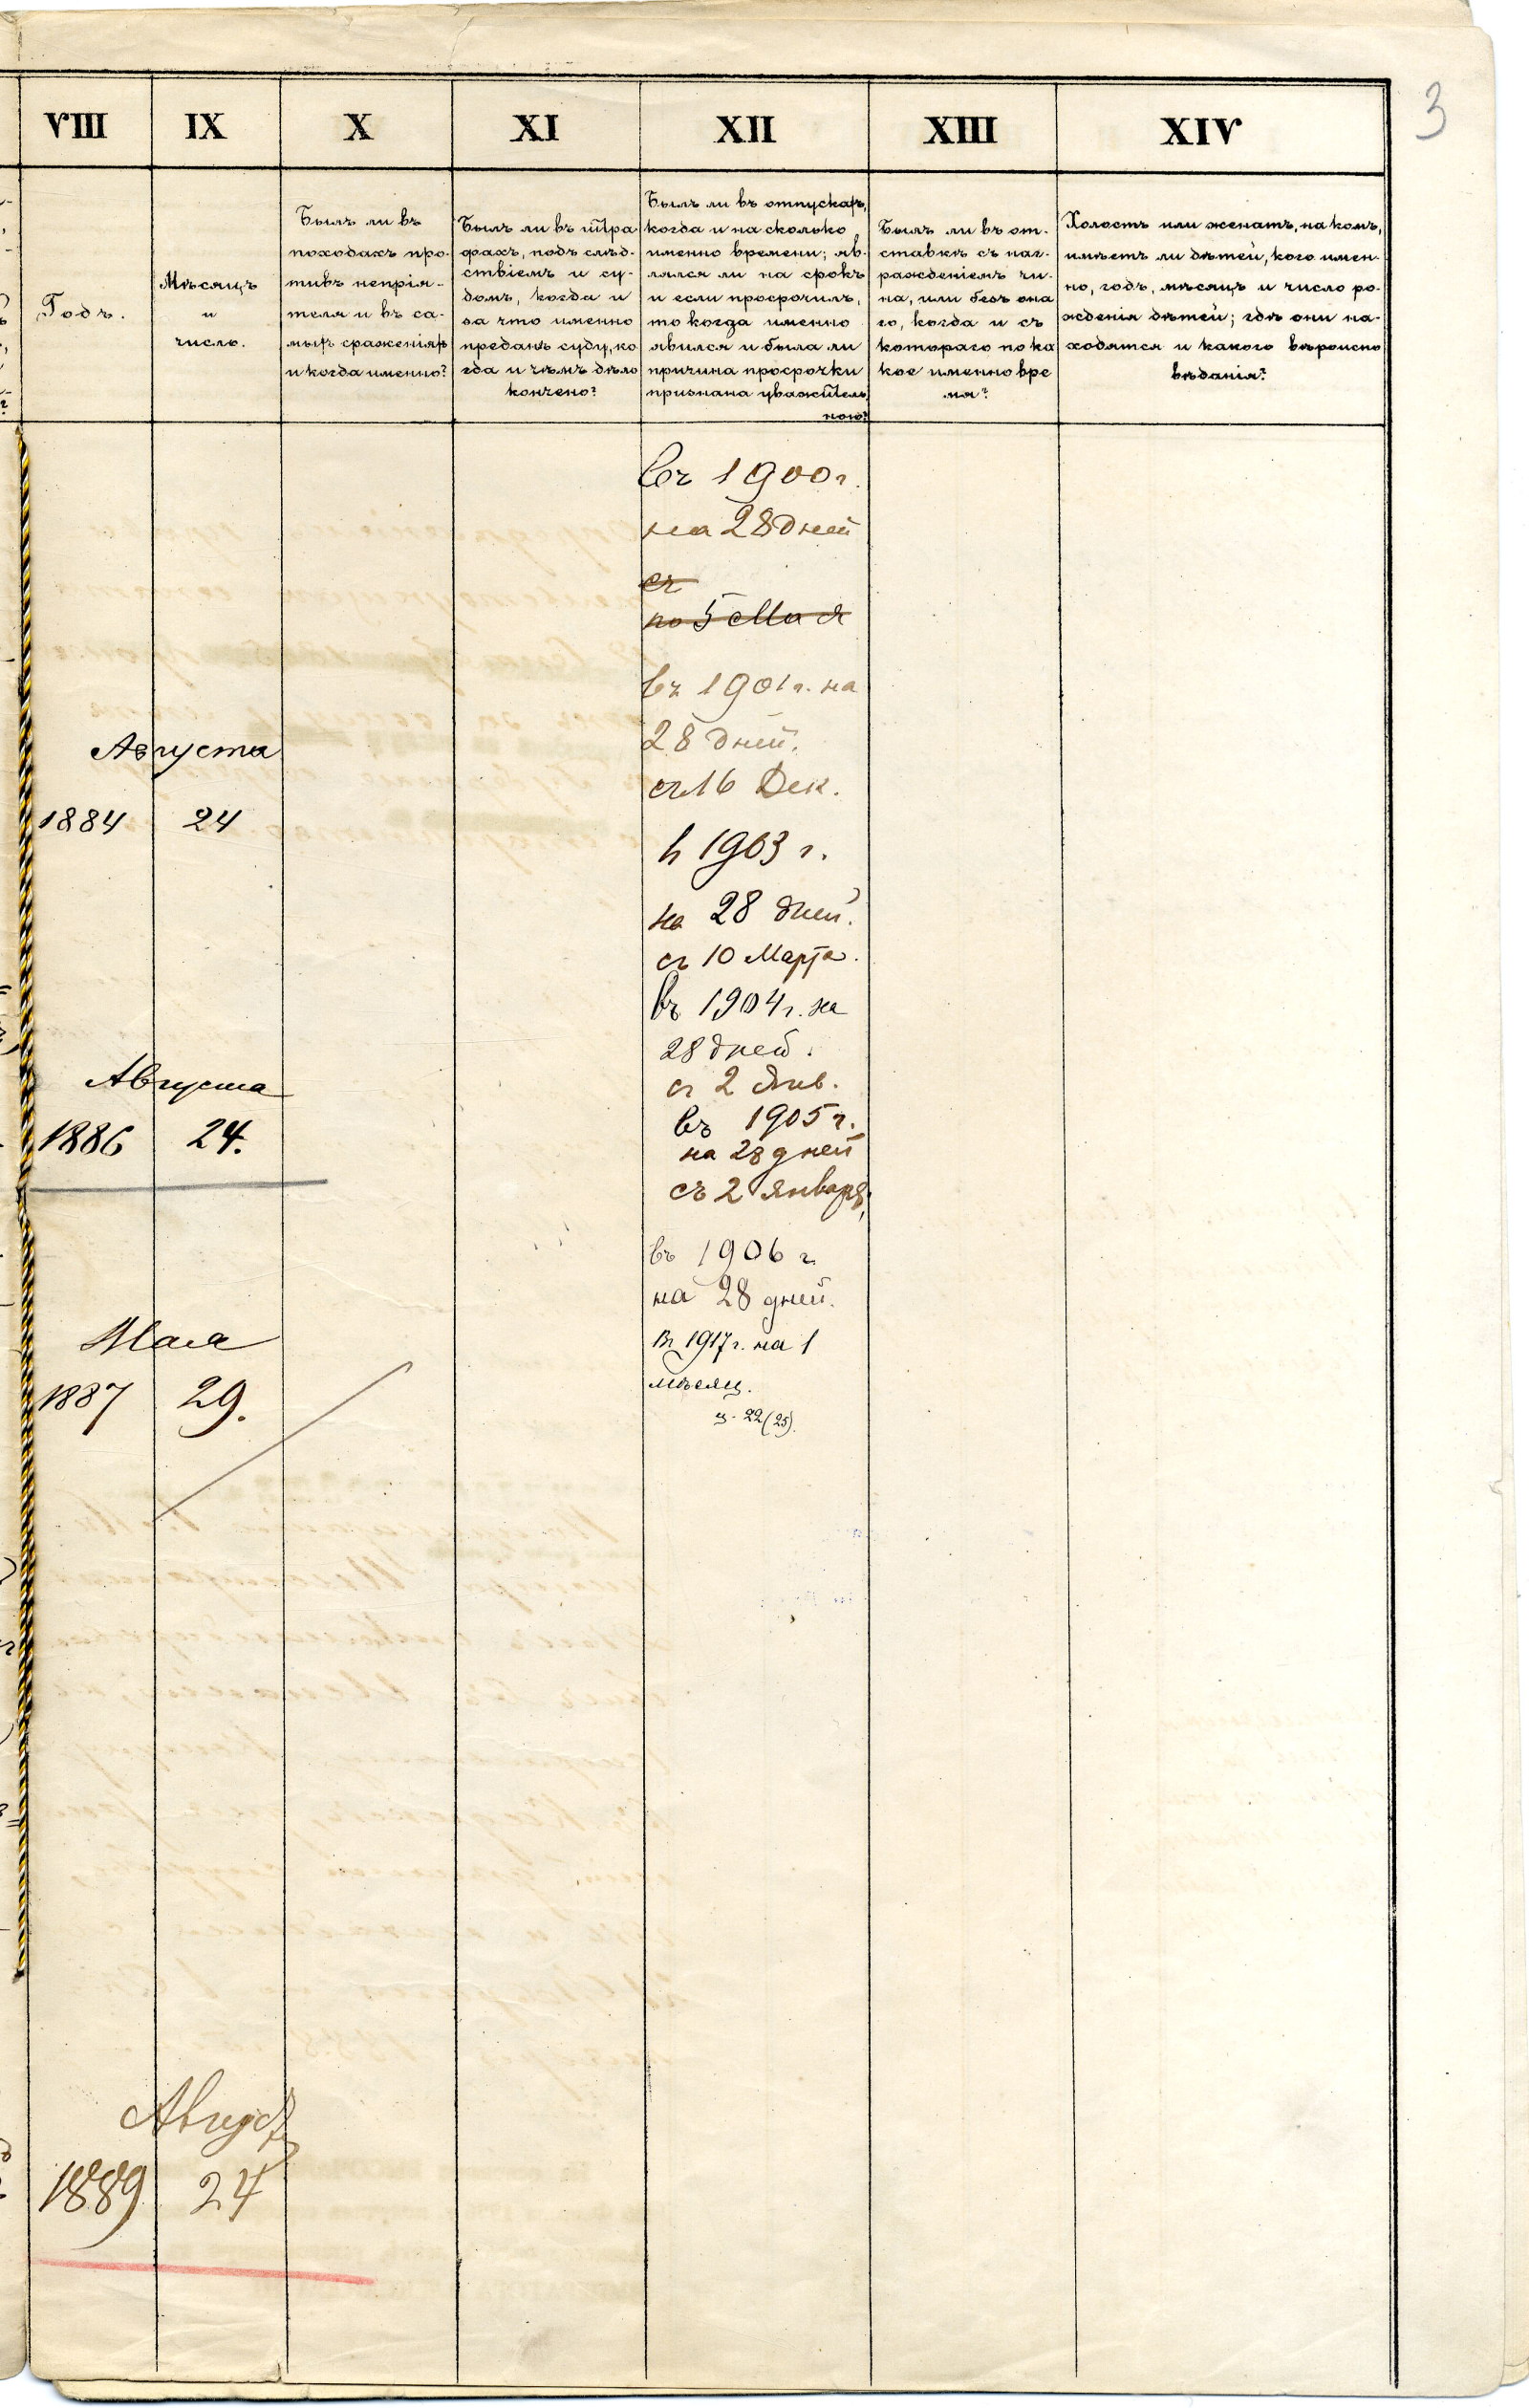 3
VIII IX X XI XII XIII XIV
Годъ.
Мѣсяцъ
и
число.
Былъ ли въ
походахъ про-
тивъ непрія-
теля и въ са-
мыхъ сраженіяхъ
и когда именно?
Былъ ли въ штра
фахъ, подъ слѣд-
ствіемъ и су-
домъ, когда и
за что именно
преданъ суду, ко
гда и чѣмъ дѣло
кончено?
Былъ ли въ отпускахъ,
когда и на сколько
именно времени; яв-
лялся ли на срокъ
и если просрочилъ,
то когда именно
явился и была ли
причина просрочки
признана уважитель
ною?
Былъ ли въ от-
ставкѣ съ наг-
ражденіемъ чи-
на, или безъ она
го, когда и съ
котораго по ка
кое именно вре
мя?
Холостъ или женатъ, на комъ,
имѣетъ ли дѣтей, кого имен-
но, годъ, мѣсяцъ и число ро-
жденія дѣтей; гдѣ они на-
ходятся и какого вѣроиспо
вѣданія?
Въ 1900 г.
на 28 дней
съ
по 5 Мая
въ 1901 г. на
28 дней.
съ 16 Дек.
Августа
1884 24
в 1903 г.
на 28 дней.
съ 10 Марта.
въ 1904 г. на
28 дней.
съ 2 Янв.
въ 1905 г.
на 28 дней
съ 2 Января.
Августа
1886 24.
въ 1906 г.
на 28 дней.
Въ 1917 г. на 1
мѣсяц.
22 (25).
Мая
1887 29.
Август
1889 24